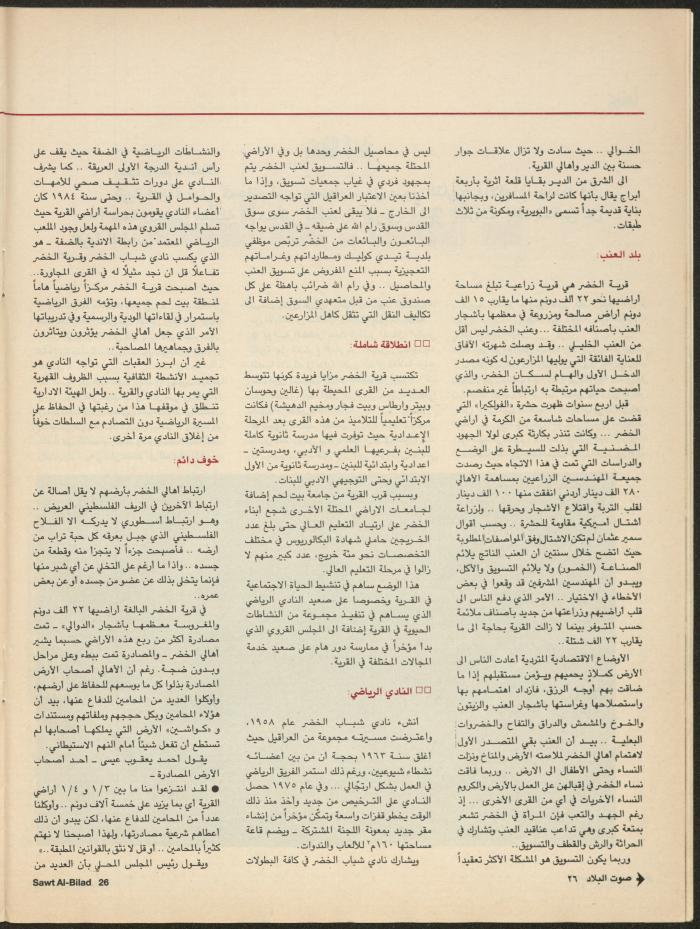 الخوالي .. حيث سادت ولا تزال علاقات جوار
حسنة بين الدير وأهالي القرية.
الى الشرق من الدير بقايا قلعة اثرية باربعة
ابراج يقال بأنها كانت لراحة المسافرين، وبجانبها
بناية قديمة جداً تسمى «البويرية» ومكونة من ثلاث
طبقات.
بلد العنب:
قرية الخضر هي قرية زراعية تبلغ مساحة
اراضيها نحو ٢٢ ألف دونم منها ما يقارب ١٥ الف
دونم أراض صالحة ومزروعة في معظمها بأشجار
العنب بأصنافه المختلفة ... وعنب الخضر ليس أقل
من العنب الخليلي .. وقد وصلت شهرته الآفاق
للعناية الفائقة التي يوليها المزارعون له كونه مصدر
الدخل الأول والهام لسكان الخضر، والذي
اصبحت حياتهم مرتبطة به ارتباطاً غير منفصم.
قبل اربع سنوات ظهرت حشرة «الفولكيرا» التي
قضت على مساحات شاسعة من الكرمة في اراضي
الخضر ... وكانت تنذر بكارثة كبرى لولا الجهود
المضنية التي بذلت للسيطرة على الوضع
والدراسات التي تمت في هذا الاتجاه حيث رصدت
جمعية المهندسين الزراعيين بمساهمة الأهالي
٢٨٠ الف دينار أردني انفقت منها ١٠٠ الف دينار
لقلب التربة واقتلاع الأشجار وحرقها .. ولزراعة
اشتال اميركية مقاومة للحشرة .. وحسب أقوال
سمير عثمان لم تكن الاشتال وفق المواصفات المطلوبة
حيث اتضح خلال سنتين أن العنب الناتج يلائم
الصناعة (الخمور) ولا يلائم التسويق والأكل،
ويبدو أن المهندسين المشرفين قد وقعوا في بعض
الأخطاء في الاختيار .. الأمر الذي دفع الناس الى
قلب أراضيهم وزراعتها من جديد بأصناف ملائمة
حسب المتوفر بينما لا زالت القرية بحاجة الى ما
يقارب ٢٢ الف شتلة .
الأوضاع الاقتصادية المتردية أعادت الناس الى
الأرض كملاذٍ يحميهم ويؤمن مستقبلهم إذا ما
ضاقت بهم أوجه الرزق، فازداد اهتمامهم بها
واستصلاحها وغراستها بأشجار العنب والزيتون
والخوخ والمشمش والدراق والتفاح والخضروات
البعلية .. بيد أن العنب بقي المتصدر الأول
لاهتمام أهالي الخضر لملاءمته الأرض والمناخ ونزلت
النساء وحتى الأطفال الى الارض .. وربما فاقت
نساء الخضر في إقبالهن على العمل بالأرض والكروم
النساء الأخريات في أي من القرى الأخرى ... إذ
رغم الجهد والتعب فإن المرأة في الخضر تشعر
بمتعة كبرى وهي تداعب عناقيد العنب وتشارك في
الحراثة والرش والقطف والتسويق..
وربما يكون التسويق هو المشكلة الأكثر تعقيداً
ليس في محاصيل الخضر وحدها بل وفي الأراضي
المحتلة جميعها .. فالتسويق لعنب الخضر يتم
بمجهود فردي في غياب جمعيات تسويق، وإذا ما
أخذنا بعين الاعتبار العراقيل التي تواجه التصدير
الى الخارج - فلا يبقى لعنب الخضر سوى سوق
القدس وسوق رام الله على ضيقه - في القدس يواجه
البائعون والبائعات من الخضر تربّص موظفي
بلدية تيدي كوليك ومطارداتهم وغراماتهم
التعجيزية بسبب المنع المفروض على تسويق العنب
والمحاصيل .. وفي رام الله ضرائب باهظة على كل
صندوق عنب من قبل متعهدي السوق إضافة الى
تكاليف النقل التي تثقل كاهل المزارعين.
□□ انطلاقة شاملة:
تكتسب قرية الخضر مزايا فريدة كونها تتوسط
العديد من القرى المحيطة بها (نحالين وحوسان
وبتير وارطاس وبيت فجار ومخيم الدهيشة) فكانت
مركزاً تعليمياً للتلاميذ من هذه القرى بعد المرحلة
الإعدادية حيث توفرت فيها مدرسة ثانوية كاملة
للبنين بفرعيها العلمي و الأدبي، ومدرستين -
اعدادية وابتدائية للبنين - ومدرسة ثانوية من الأول
الابتدائي وحتى التوجيهي الادبي للبنات.
وبسبب قرب القرية من جامعة بيت لحم إضافة
لجامعات الاراضي المحتلة الأخرى شجع ابناء
الخضر على ارتياد التعليم العالي حتى بلغ عدد
الخريجين حاملي شهادة البكالوريوس في مختلف
التخصصات نحو مئة خريج، عدد كبير منهم لا
زالوا في مرحلة التعليم العالي.
هذا الوضع ساهم في تنشيط الحياة الاجتماعية
في القرية وخصوصا على صعيد النادي الرياضي
الذي يساهم في تنفيذ مجموعة من النشاطات
الحيوية في القرية إضافة الى المجلس القروي الذي
بدا مؤخراً في ممارسة دور هام على صعيد خدمة
المجالات المختلفة في القرية.
□□ النادي الرياضي:
أنشء نادي شباب الخضر عام ١٩٥٨،
واعترضت مسيرته مجموعة من العراقيل حيث
أغلق سنة ١٩٦٣ بحجة ان من بين اعضائه
نشطاء شيوعيين، ورغم ذلك استمر الفريق الرياضي
في العمل بشكل ارتجالي ... وفي عام ١٩٧٥ حصل
النادي على الترخيص من جديد وأخذ منذ ذلك
الوقت يخطو قفزات واسعة وتمكن مؤخراً من إنشاء
مقر جديد بمعونة اللجنة المشتركة - ويضم قاعة
مساحتها ١٦٠م٢ للألعاب والندوات.
ويشارك نادي شباب الخضر في كافة البطولات
والنشاطات الرياضية في الضفة حيث يقف على
رأس أندية الدرجة الأولى العريقة .. كما يشرف
النادي على دورات تثقيف صحي للأمهات
والحوامل في القرية .. وحتى سنة ١٩٨٤ كان
أعضاء النادي يقومون بحراسة أراضي القرية حيث
تسلم المجلس القروي هذه المهمة ولعل وجود الملعب
الرياضي المعتمد من رابطة الاندية بالضفة - هو
الذي يكسب نادي شباب الخضر وقرية الخضر
تفاعلاً قل أن نجد مثيلًا له في القرى المجاورة..
حيث اصبحت قرية الخضر مركزاً رياضياً هاماً
لمنطقة بيت لحم جميعها، وتؤمه الفرق الرياضية
باستمرار في لقاءاتها الودية والرسمية وفي تدريباتها
الأمر الذي جعل أهالي الخضر يؤثرون ويتأثرون
بالفرق وجماهيرها المصاحبة..
غير أن ابرز العقبات التي تواجه النادي هو
تجميد الأنشطة الثقافية بسبب الظروف القهرية
التي يمر بها النادي والقرية .. ولعل الهيئة الادارية
تنطلق في موقفها هذا من رغبتها في الحفاظ على
المسيرة الرياضية دون التصادم مع السلطات خوفاً
من إغلاق النادي مرة أخرى.
خوف دائم:
ارتباط أهالي الخضر بأرضهم لا يقل أصالة عن
ارتباط الآخرين في الريف الفلسطيني العريض ..
وهو ارتباط اسطوري لا يدركه الا الفلاح
الفلسطيني الذي جبل بعرقه كل حبة تراب من
ارضه .. فأصبحت جزءاً لا يتجزا منه وقطعة من
جسده .. واذا ما أرغم على التخلي عن اي شبر منها
فإنما يتخلى بذلك عن عضو من جسده أو عن بعض
عمره..
في قرية الخضر البالغة اراضيها ٢٢ الف دونم
والمغروسة معظمها بأشجار «الدوالي» - تمت
مصادرة أكثر من ربع هذه الأراضي حسبما يشير
أهالي الخضر - والمصادرة تمت ببطء وعلى مراحل
وبدون ضجة. رغم أن الأهالي أصحاب الأرض
المصادرة بذلوا كل ما بوسعهم للحفاظ على أرضهم،
وأوكلوا العديد من المحامين للدفاع عنها، بيد أن
هؤلاء المحامين وبكل حججهم وملفاتهم ومستندات
و «كواشين» الأرض التي يملكها اصحابها لم
تستطع أن تفعل شيئاً أمام النهم الاستيطاني.
يقول احمد يعقوب عيسى - احد أصحاب
الأرض المصادرة -
● لقد انتزعوا منا ما بين ١/٣ و ١/٤ اراضي
القرية أي بما يزيد على خمسة آلاف دونم .. وأوكلنا
عدداً من المحامين للدفاع عنها، لكن يبدو ان ذلك
اعطاهم شرعية مصادرتها، ولهذا اصبحنا لا نهتم
كثيراً بالمحامين .. أو قل لا نثق بالقوانين المطبقة .»
ويقول رئيس المجلس المحلي بأن العديد من
صوت البلاد ٢٦
Sawt Al-Bilad 26